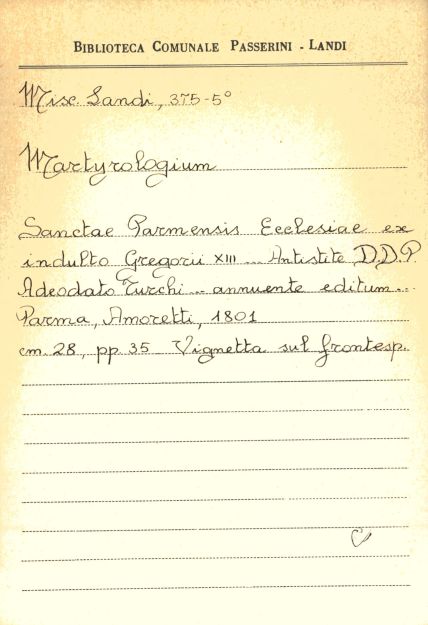 BIBLIOTECA COMUNALE PASSERINI - LANDI
Misc. Landi, 375-5°
Martyrologium
Sanctae Parmensis Ecclesiae ex
indulto Gregorii XIII ... Antistite D.D.P.
Adeodato Turchi ... annuente editum...
Parma, Amoretti, 1801
cm. 28, pp. 35 Vignetta sul frontesp.